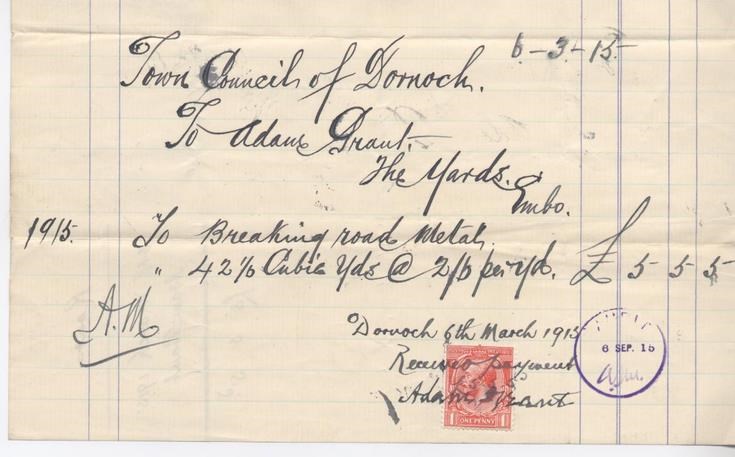 6-3-15
Town Council of Dornoch.
To Adam Grant.
The Yards.
Embo.
1915. To Breaking road Metal.
" 42 Cubic Yds @ 2/6 per yd. £ 5 5 5
A.M
Dornoch 6th March 1915
Received payment
Adam Grant
ONE PENNY
6 SEP. 15